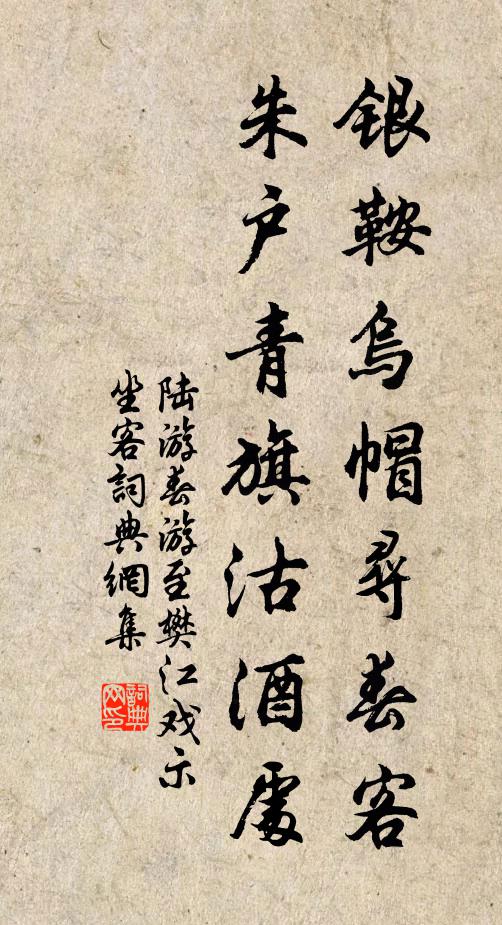 银鞍乌帽寻春客
朱户青旗沽酒处
陆游春游至樊江戏示
坐客词典网集
词典网印